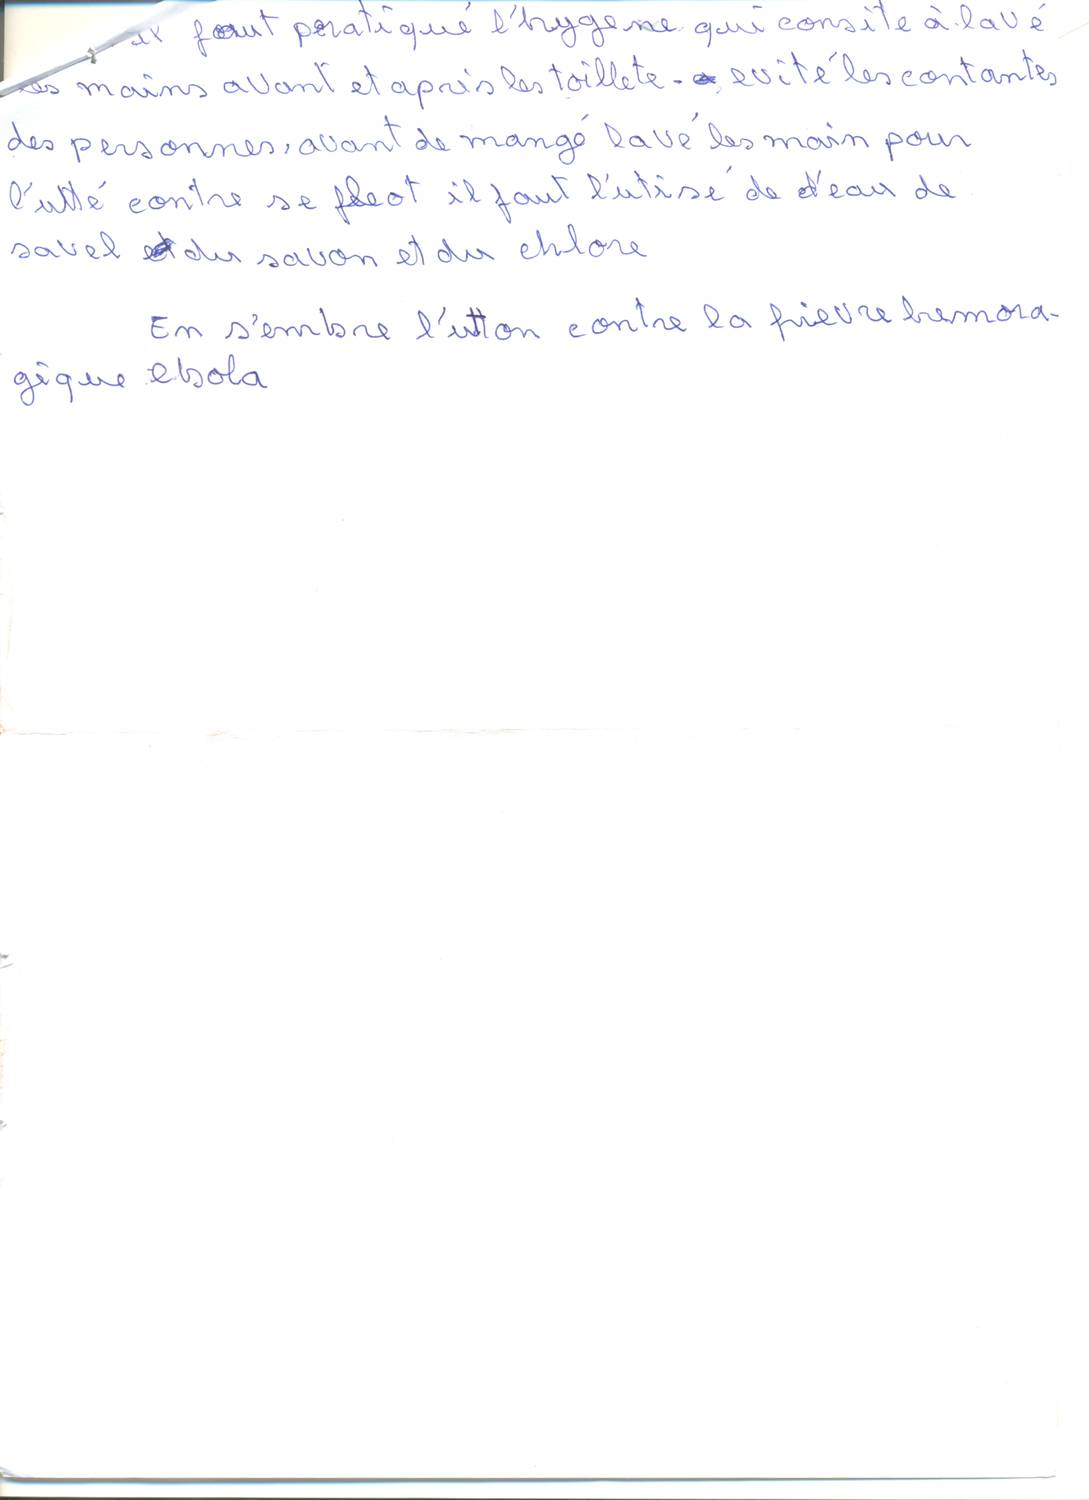 il faut pratiqué l'hygene qui consite à lavé
les mains avant et après les toillete - evité les contantes
des personnes, avant de mangé lavé les main pour
l'utté contre se fleot il faut l'utisé de d'eau de
savel du savon et du chlore
En s'embre l'utton contre la fievre hemora-
gique ebola